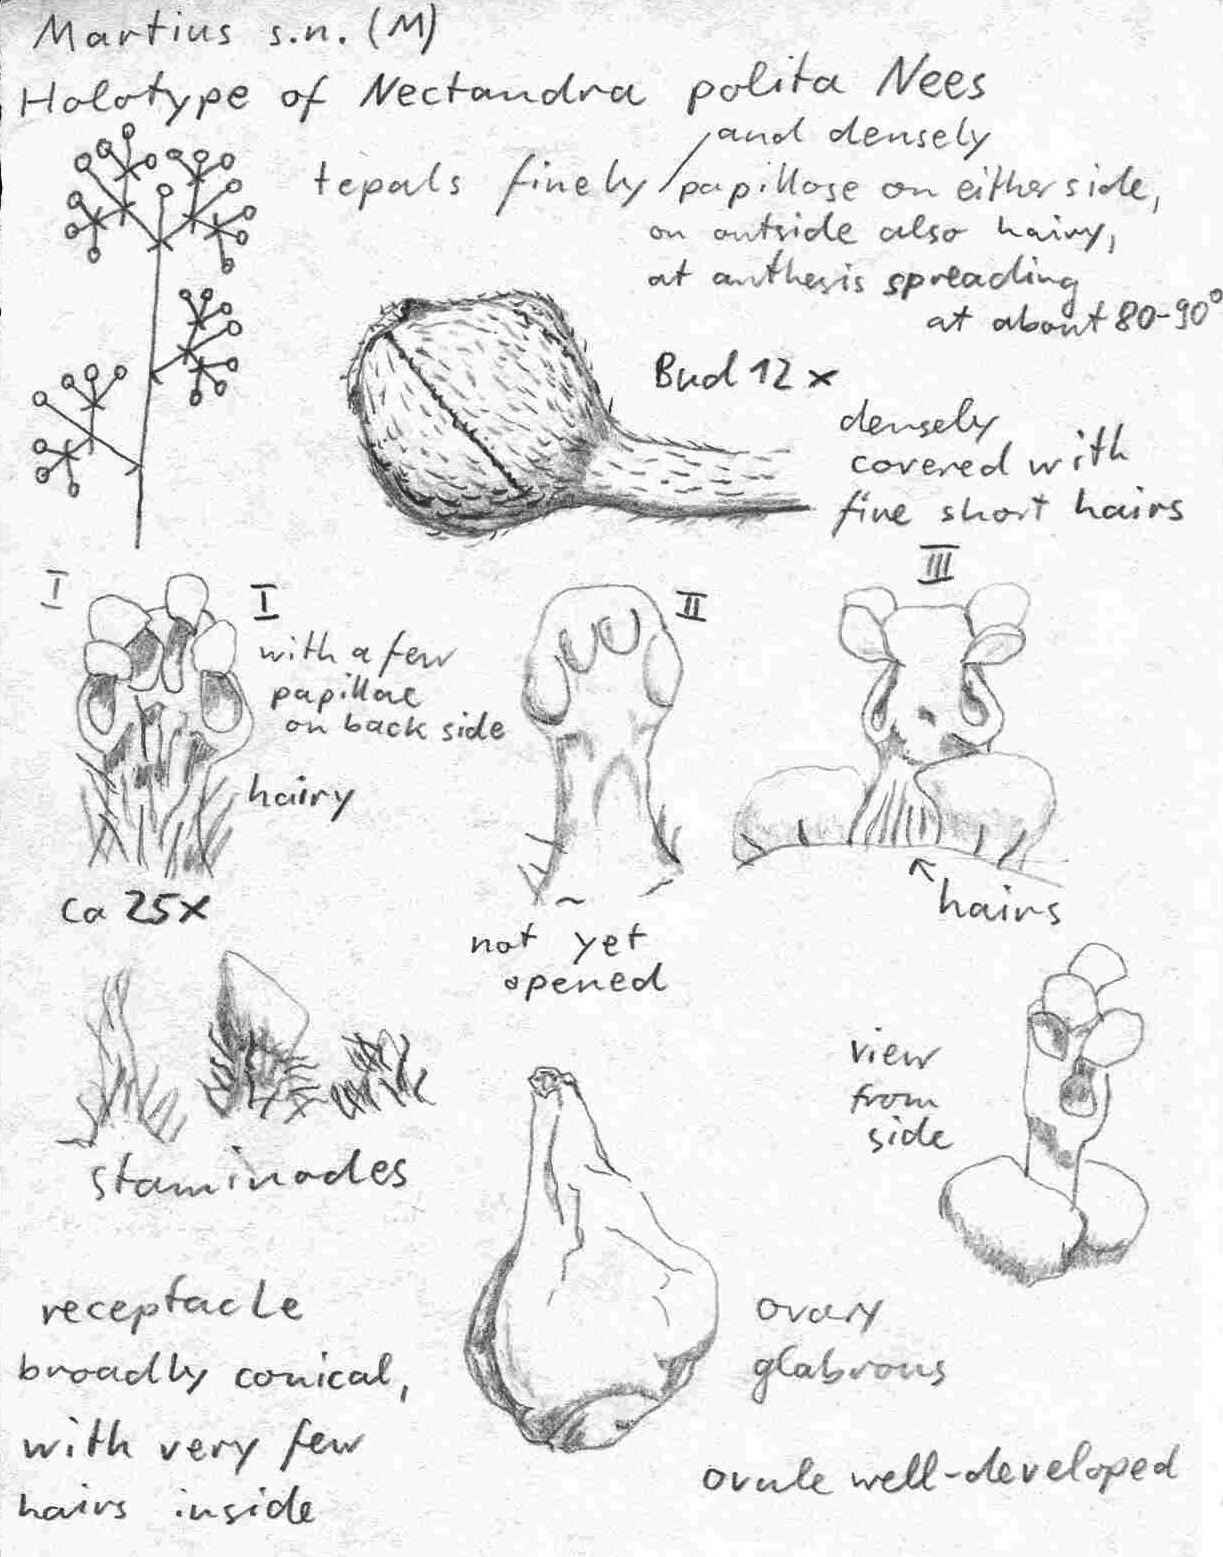 Martius s.n. (M)
Holotype of Nectandra polita Nees
and densely
tepals finely / papillose on either side,
on outside also hairy,
at anthesis spreading
at about 80-90°
Bud 12 x
densely
covered with
fine short hairs
I
I
II
III
with a few
papillae
on back side
hairy
ca 25x
not yet
opened
hairs
view
from
side
staminodes
receptacle
broadly conical,
with very few
hairs inside
ovary
glabrous
ovule well-developed